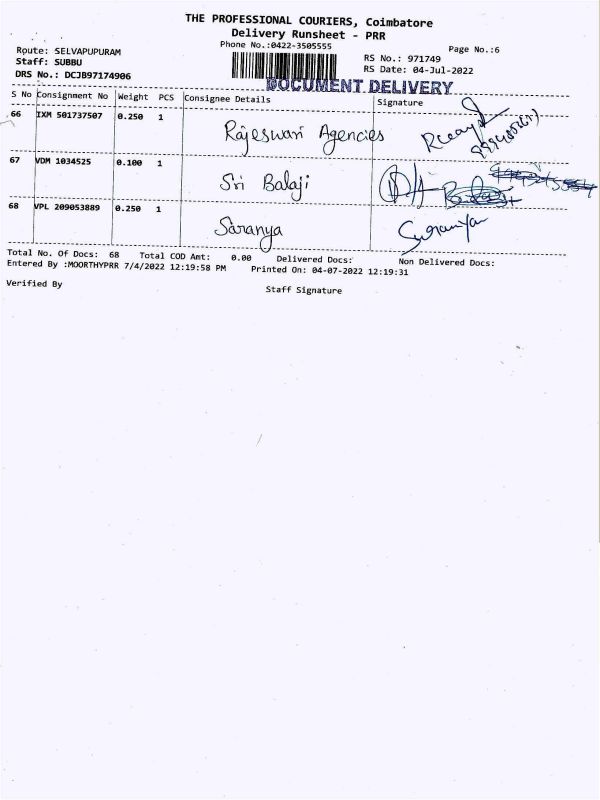 THE PROFESSIONAL COURIERS, Coimbatore
Delivery Runsheet - PRR
Phone No.:0422-3505555
Page No.:6
Route: SELVAPUPURAM
Staff: SUBBU
DRS No.: DCJB97174906
RS No.: 971749
RS Date: 04-Jul-2022
DOCUMENT DELIVERY
S No Consignment No Weight PCS Consignee Details Signature
66 IXM 501737507 0.250 1 Rajeswari Agencies
67 VDM 1034525 0.100 1 Sri Balaji
68 VPL 209053889 0.250 1 Saranya
Total No. Of Docs: 68 Total COD Amt: 0.00 Delivered Docs: Non Delivered Docs:
Entered By :MOORTHYPRR 7/4/2022 12:19:58 PM Printed On: 04-07-2022 12:19:31
Verified By
Staff Signature